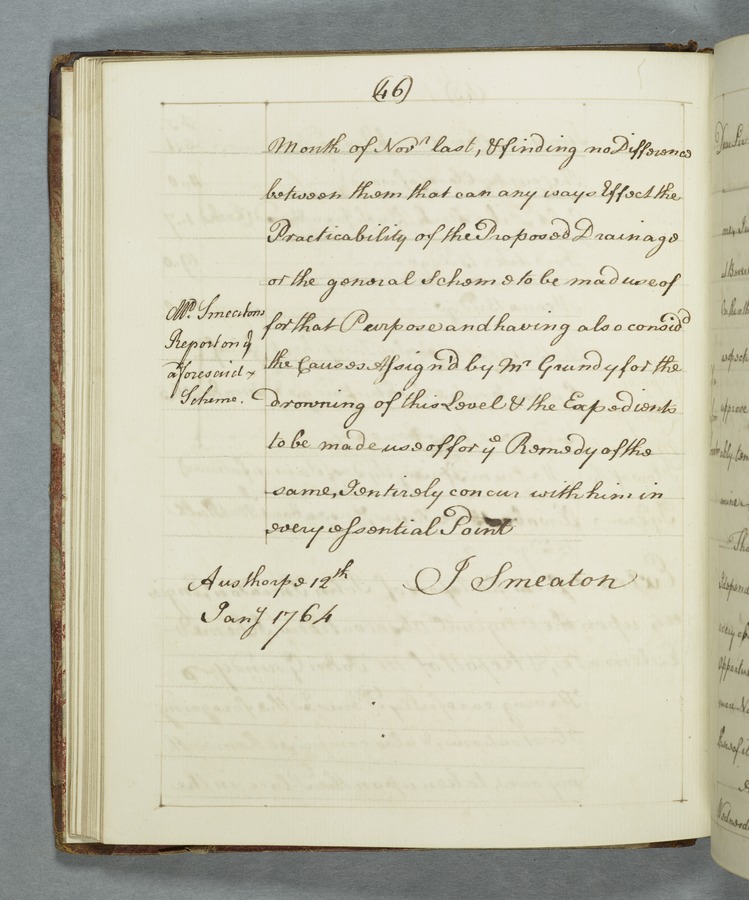 (46)
Month of Novr last, & finding no Difference
between them that can any ways Effect the
Practicability of the Proposed Drainage
or the general Scheme to be made use of
for that Purpose and having also consid'd
the Causes Assign'd by Mr Grundy for the
Drowning of this Level & the Expedients
to be made use of for ye Remedy of the
same, I entirely concur with him in
every essential Point
Mr. Smeatons
Report on ye
aforesaid
Scheme.
Austhorpe 12th
Jany 1764
J Smeaton